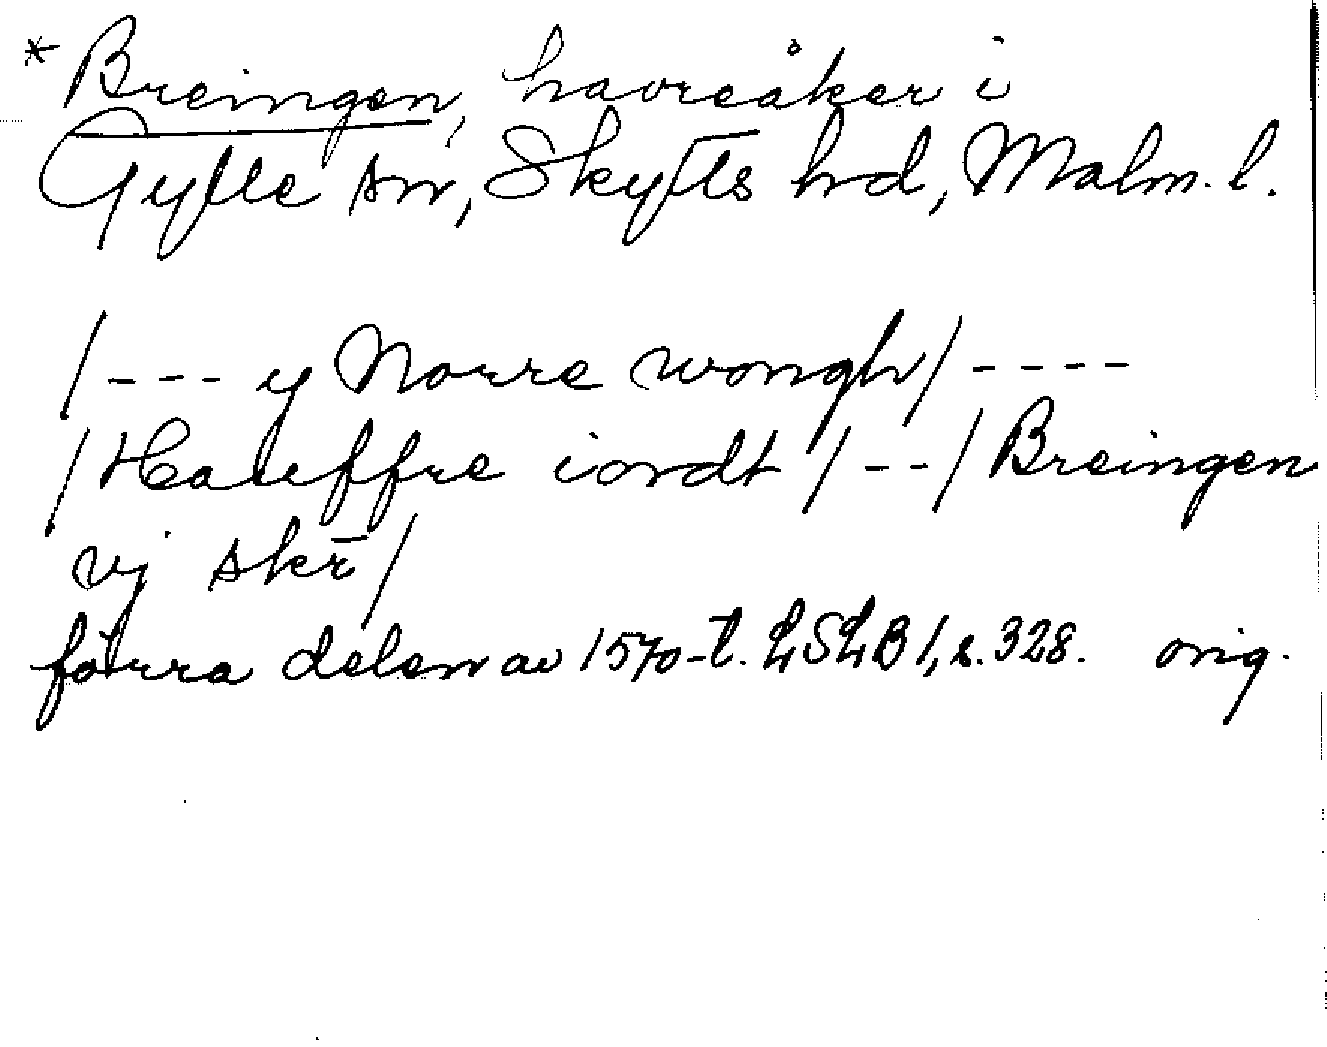 * Breingen, havreåker i
Gylle sn, Skytts hd, Malm. l.
/--- y Norre wongh/ ----
/Hauffre iordt /--/ Breingen
vj skr̄/
förra delen av 1570-t. LSLB 1, s. 328. orig.